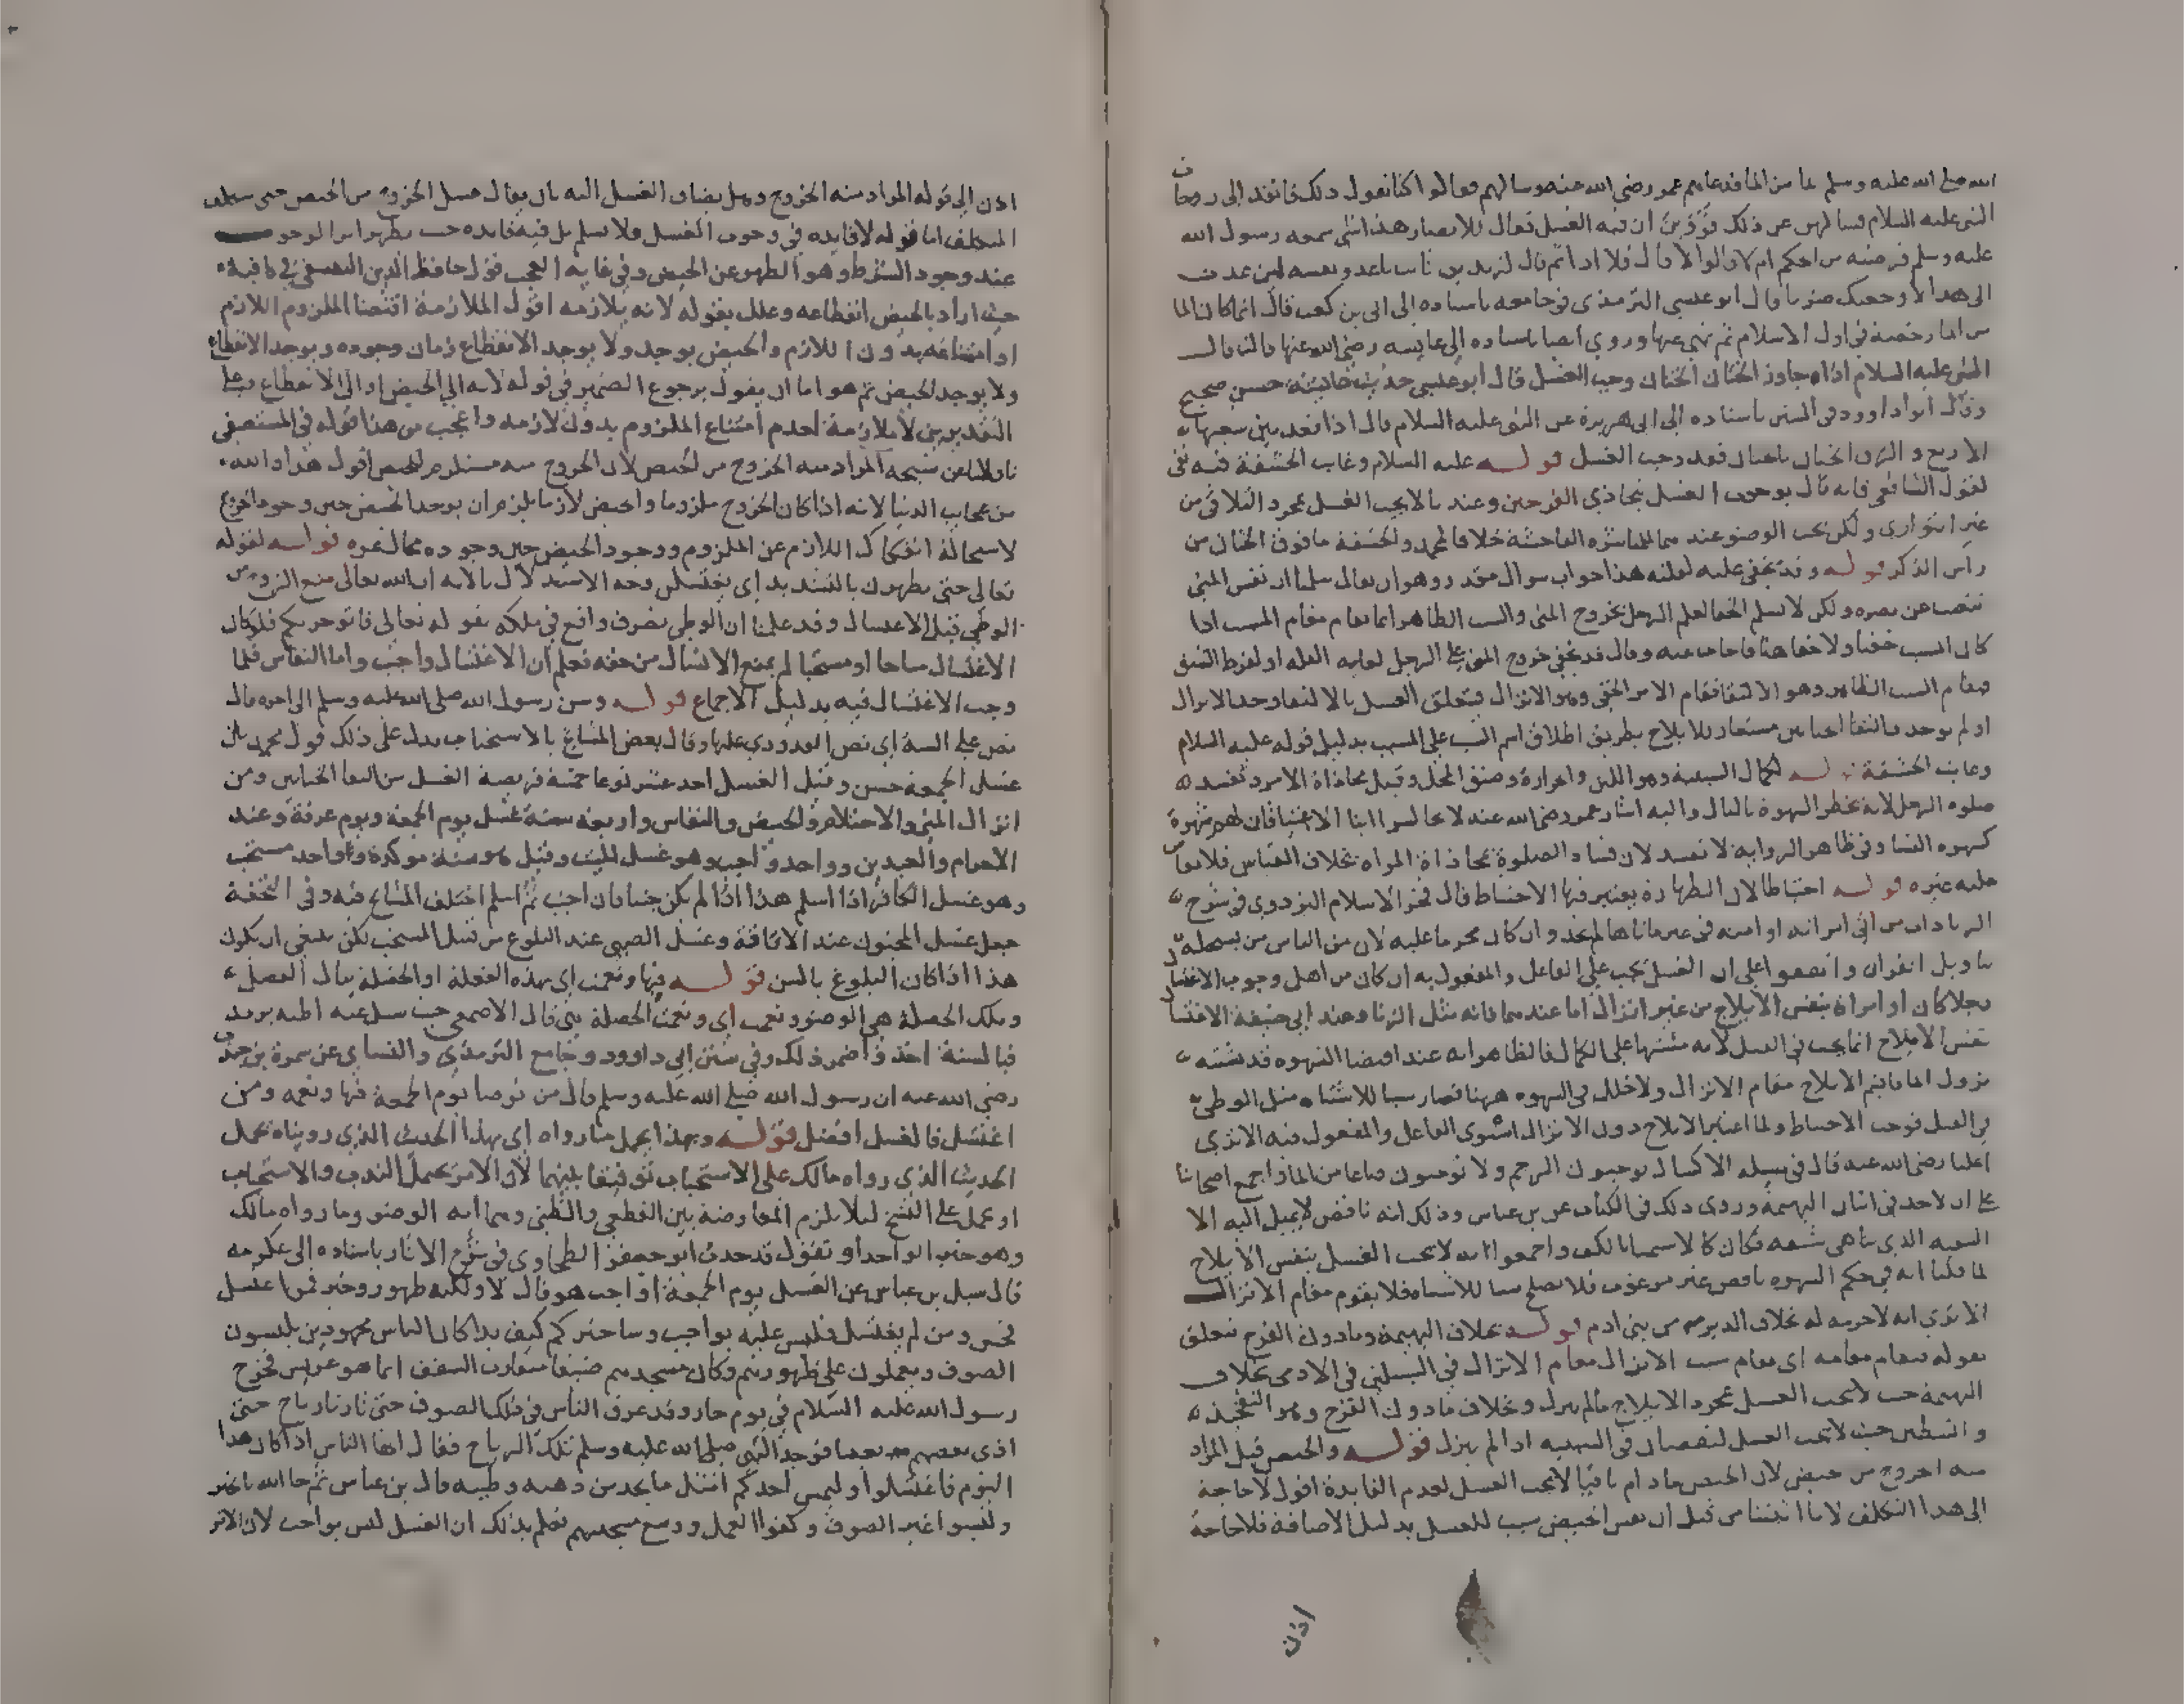 الله صلى الله عليه وسلم ما من الما فدعاهم عمر رضي الله عنه وسالهم فقالوا كنا نفعل ذلك فانفذ الى زوجات
النبي عليه السلام فسالهن عن ذلك فروين ان فيه الغسل فقال للانصار هذا اشى سمعه رسول الله
عليه وسلم فرضيه من احدكم ام لا قالوا لا قال فلا اذا ثم قال لزيد بن ثابت
الى هذا لاوجعنك ضربا وقال ابو عيسى الترمذي في جامعه باسناده الى ابي بن كعب قال انما كان الما
من الما رخصة في اول الاسلام ثم نهي عنها وروي ايضا باسناده الى عايشه رضي الله عنها قالت قال
النبي عليه السلام اذا جاوز الختان الختان وجب الغسل قال ابو عيسى حديث عايشة حسن صحيح
وقال ابو داوود في السنن باسناده الى ابي هريرة عن النبي عليه السلام قال اذا قعد بين شعبها
الاربع والزق الختان بالختان فقد وجب الغسل قوله عليه السلام وغاب الحشفة فيه نفي
لقول الشافعي فانه قال بوجوب الغسل بتحاذي الفرجين وعندنا لا يجب الغسل بمجرد التلاقي من
غير التواري ولكن يجب الوضو عندهما للمباشره الفاحشة خلافا لمحمد والحشفة ما فوق الختان من
راس الذكر قوله وقد يخفى عليه لقلته هذا جواب سوال مقدر وهو ان يقال سلمنا ان نفس المني
تتغيب عن بصره ولكن لا نسلم الخفا لعلم الرجل بخروج المني والسبب الظاهر انما يقام مقام المسبب اذا
كان المسبب خفيا ولا خفا هنا فاجاب عنه وقال قد يخفى خروج المني على الرجل لغاية القلة او لفرط الشبق
فيقام السبب الظاهر وهو الالتقا مقام الامر الخفي وهو الانزال فيتعلق الغسل بالالتقا وجد الانزال
او لم يوجد والتقا الختانين مستعار للايلاج بطريق اطلاق اسم السبب على المسبب بدليل قوله عليه السلام
وغابت الحشفة قوله لكمال السببية وهو اللين والحرارة وضيق المحل وقيل محاذاة الامرد تفسد
صلوه الرجل لانه يخطر الشهوة بالبال واليه اشار عمر رضي الله عنه لا تجالسوا ابنا الاغنيا فان لهم شهوة
كشهوه النسا وفي ظاهر الروايه لا تفسد لان فساد الصلوة بمحاذاة المراه بخلاف القياس فلا يقاس
عليه غيره قوله احتياطا لان الطهارة يعتبر فيها الاحتياط قال فخر الاسلام البزدوي في شرح
الزيادات من اتى امراته او امته في غير ماتاها لم يحد وان كان محرما عليه لان من الناس من يستحله
بتاويل القران واتفقوا على ان الغسل يجب على الفاعل والمفعول به ان كان من اهل وجوب الاغتسال
رجلا كان او امراة بنفس الايلاج من غير انزال اما عندهما فانه مثل الزنا وعند ابي حنيفة الاغتسال
بنفس الايلاج انما يجب في القبل لانه مشتهى على الكمال فالظاهر انه عند اقتضا الشهوه قد يشتبه
نزول الما فاقيم الايلاج مقام الانزال ولا خلل في الشهوه ههنا فصار سببا للاشتباه مثل الوطي
في القبل فوجب الاحتياط ولما اعتبر الايلاج دون الانزال استوى الفاعل والمفعول فيه الا ترى
ان عليا رضي الله عنه قال في مسيلة الاكسال يوجبون الرجم ولا يوجبون صاعا من الما واجمع اصحابنا
على ان لا حد في اتيان البهيمة وروى ذلك في الكتاب عن بن عباس وذلك انه ناقص لا يميل اليه الا
السفيه الذي تناهى شبقه فكان كالاستمنا بالكف واجمعوا انه لا يجب الغسل بنفس الايلاج
لما قلنا انه في حكم الشهوه ناقص غير مرغوب فلا يصلح سببا للاشتباه فلا يقوم مقام الانزال
الا ترى انه لا حرمه له بخلاف الدبر من بني ادم قوله بخلاف البهيمة وما دون الفرج يتعلق
بقوله فيقام مقامه اي يقام سبب الانزال مقام الانزال في السبيلين في الادمى بخلاف
البهيمة حيث لا يجب الغسل بمجرد الايلاج ما لم ينزل وبخلاف ما دون الفرج وهو التفخيذ
والتبطين حيث لا يجب الغسل لنقصان في السببيه اذا لم ينزل قوله والحيض قيل المراد
منه الخروج من حيض لان الحيض ما دام باقيا لا يجب الغسل لعدم الفايدة اقول لا حاجة
الى هذا التكلف لانا اثبتنا من قبل ان نفس الحيض سبب للغسل بدليل الاضافة فلا حاجة
اذن
اذن الى قوله المراد منه الخروج وهل يضاف الغسل اليه بان يقال غسل الخروج من الحيض حتى يتكلف
المتكلف اما قوله لا فايده في وجوب الغسل فلا نسلم بل فيه فايده حيث يظهر اثر الوجوب
عند وجود الشرط وهو الطهر عن الحيض وفي غاية العجب قول حافظ الدين النسفي في كافيه
حيث اراد بالحيض انقطاعه وعلل بقوله لانه يلازمه اقول الملازمة اقتضا الملزوم اللازم
او امتناعه بدون اللازم والحيض يوجد ولا يوجد الانقطاع زمان وجوده ويوجد الانقطاع
ولا يوجد الحيض ثم هو اما ان يقول برجوع الضمير في قوله لانه الى الحيض او الى الانقطاع فعلى
التقديرين لا ملازمة لعدم امتناع الملزوم بدون لازمه واعجب من هذا قوله في المستصفى
ناقلا عن شيخه المراد منه الخروج من الحيض لان الخروج منه مستلزم للحيض اقول هذا والله
من عجايب الدنيا لانه اذا كان الخروج ملزوما والحيض لازما يلزم ان يوجد الحيض حين وجود الخروج
لاستحالة انفكاك اللازم عن الملزوم ووجود الحيض حين وجوده محال غره قوله لقوله
تعالى حتى يطهرن بالتشديد اي يغتسلن وجه الاستدلال بالايه ان الله تعالى منع الزوج من
الوطي قبل الاغتسال وقد علمنا ان الوطي تصرف واقع في ملكه بقوله تعالى فاتوا حرثكم فلو كان
الاغتسال مباحا او مستحبا لم يمنع الانسان من حقه فعلم ان الاغتسال واجب واما النفاس فلما
وجب الاغتسال فيه بدليل الاجماع قوله وسن رسول الله صلى الله عليه وسلم الى اخره قال
نص على السنة اي نص القدوري عليها وقال بعض المشايخ بالاستحباب يدل على ذلك قول محمد بان
غسل الجمعة حسن وقيل الغسل احد عشر نوعا خمسة فريضة الغسل من التقا الختانين ومن
انزال المني والاحتلام والحيض والنفاس واربعة سنة غسل يوم الجمعة ويوم عرفة وعند
الاحرام والعيدين وواحد واجب وهو غسل الميت وقيل هو سنة موكدة وواحد مستحب
وهو غسل الكافر اذا اسلم هذا اذا لم يكن جنبا فان اجنب ثم اسلم اختلف المشايخ فيه وفي التحفة
جعل غسل المجنون عند الافاقة وغسل الصبي عند البلوغ من قبيل المستحب لكن ينبغي ان يكون
هذا اذا كان البلوغ بالسن قوله فبها ونعمت اي بهذه الفعلة او الخصلة ينال الفضل
وتلك الخصلة هي الوضو ونعمت اي ونعمت الخصلة هي قال الاصمعي حيث سيل عنه اظنه يريد
فبالسنة اخذ فاضمر ذلك وفي سنن ابي داوود وجامع الترمذي والنساي عن سمرة بن جندب
رضي الله عنه ان رسول الله صلى الله عليه وسلم قال من توضا يوم الجمعة فبها ونعمه ومن
اغتسل فالغسل افضل قوله وبهذا يحمل ما رواه اي بهذا الحديث الذي رويناه يحمل
الحديث الذي رواه مالك على الاستحباب توفيقا بينهما لان الامر يحتمل الندب والاستحباب
او يحمل على النسخ ليلا يلزم المعارضة بين القطعي والظني وهما اية الوضو وما رواه مالك
وهو خبر الواحد او نقول قد حدث ابو جعفر الطحاوي في شرح الاثار باسناده الى عكرمه
قال سيل بن عباس عن الغسل يوم الجمعة اواجب هو قال لا ولكنه طهور وخير فمن اغتسل
فحسن ومن لم يغتسل فليس عليه بواجب وساخبركم كيف بدا كان الناس مجهودين يلبسون
الصوف ويعملون على ظهورهم وكان مسجدهم ضيقا متقارب السقف انما هو عريش فخرج
رسول الله عليه السلام في يوم حار وقد عرق الناس في ذلك الصوف حتى ثار ثار رياح حتى
اذى بعضهم بعضا فوجد النبي صلى الله عليه وسلم تلك الرياح فقال ايها الناس اذا كان هذا
اليوم فاغتسلوا وليمس احدكم افضل ما يجد من دهنه وطيبه قال بن عباس ثم جا الله بالخير
ولبسوا غير الصوف وكفوا العمل ووسع مسجدهم فعلم بذلك ان الغسل ليس بواجب لان الامر